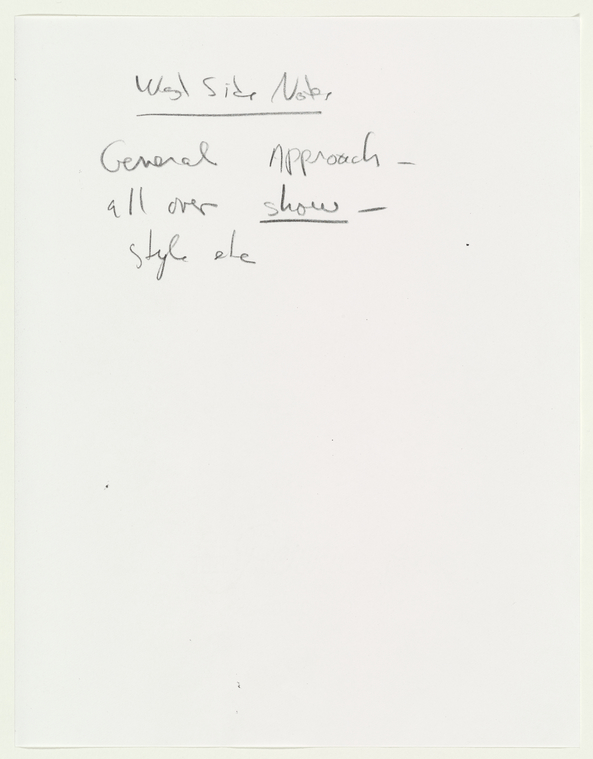 West Side Notes
General Approach –
all over show –
style etc